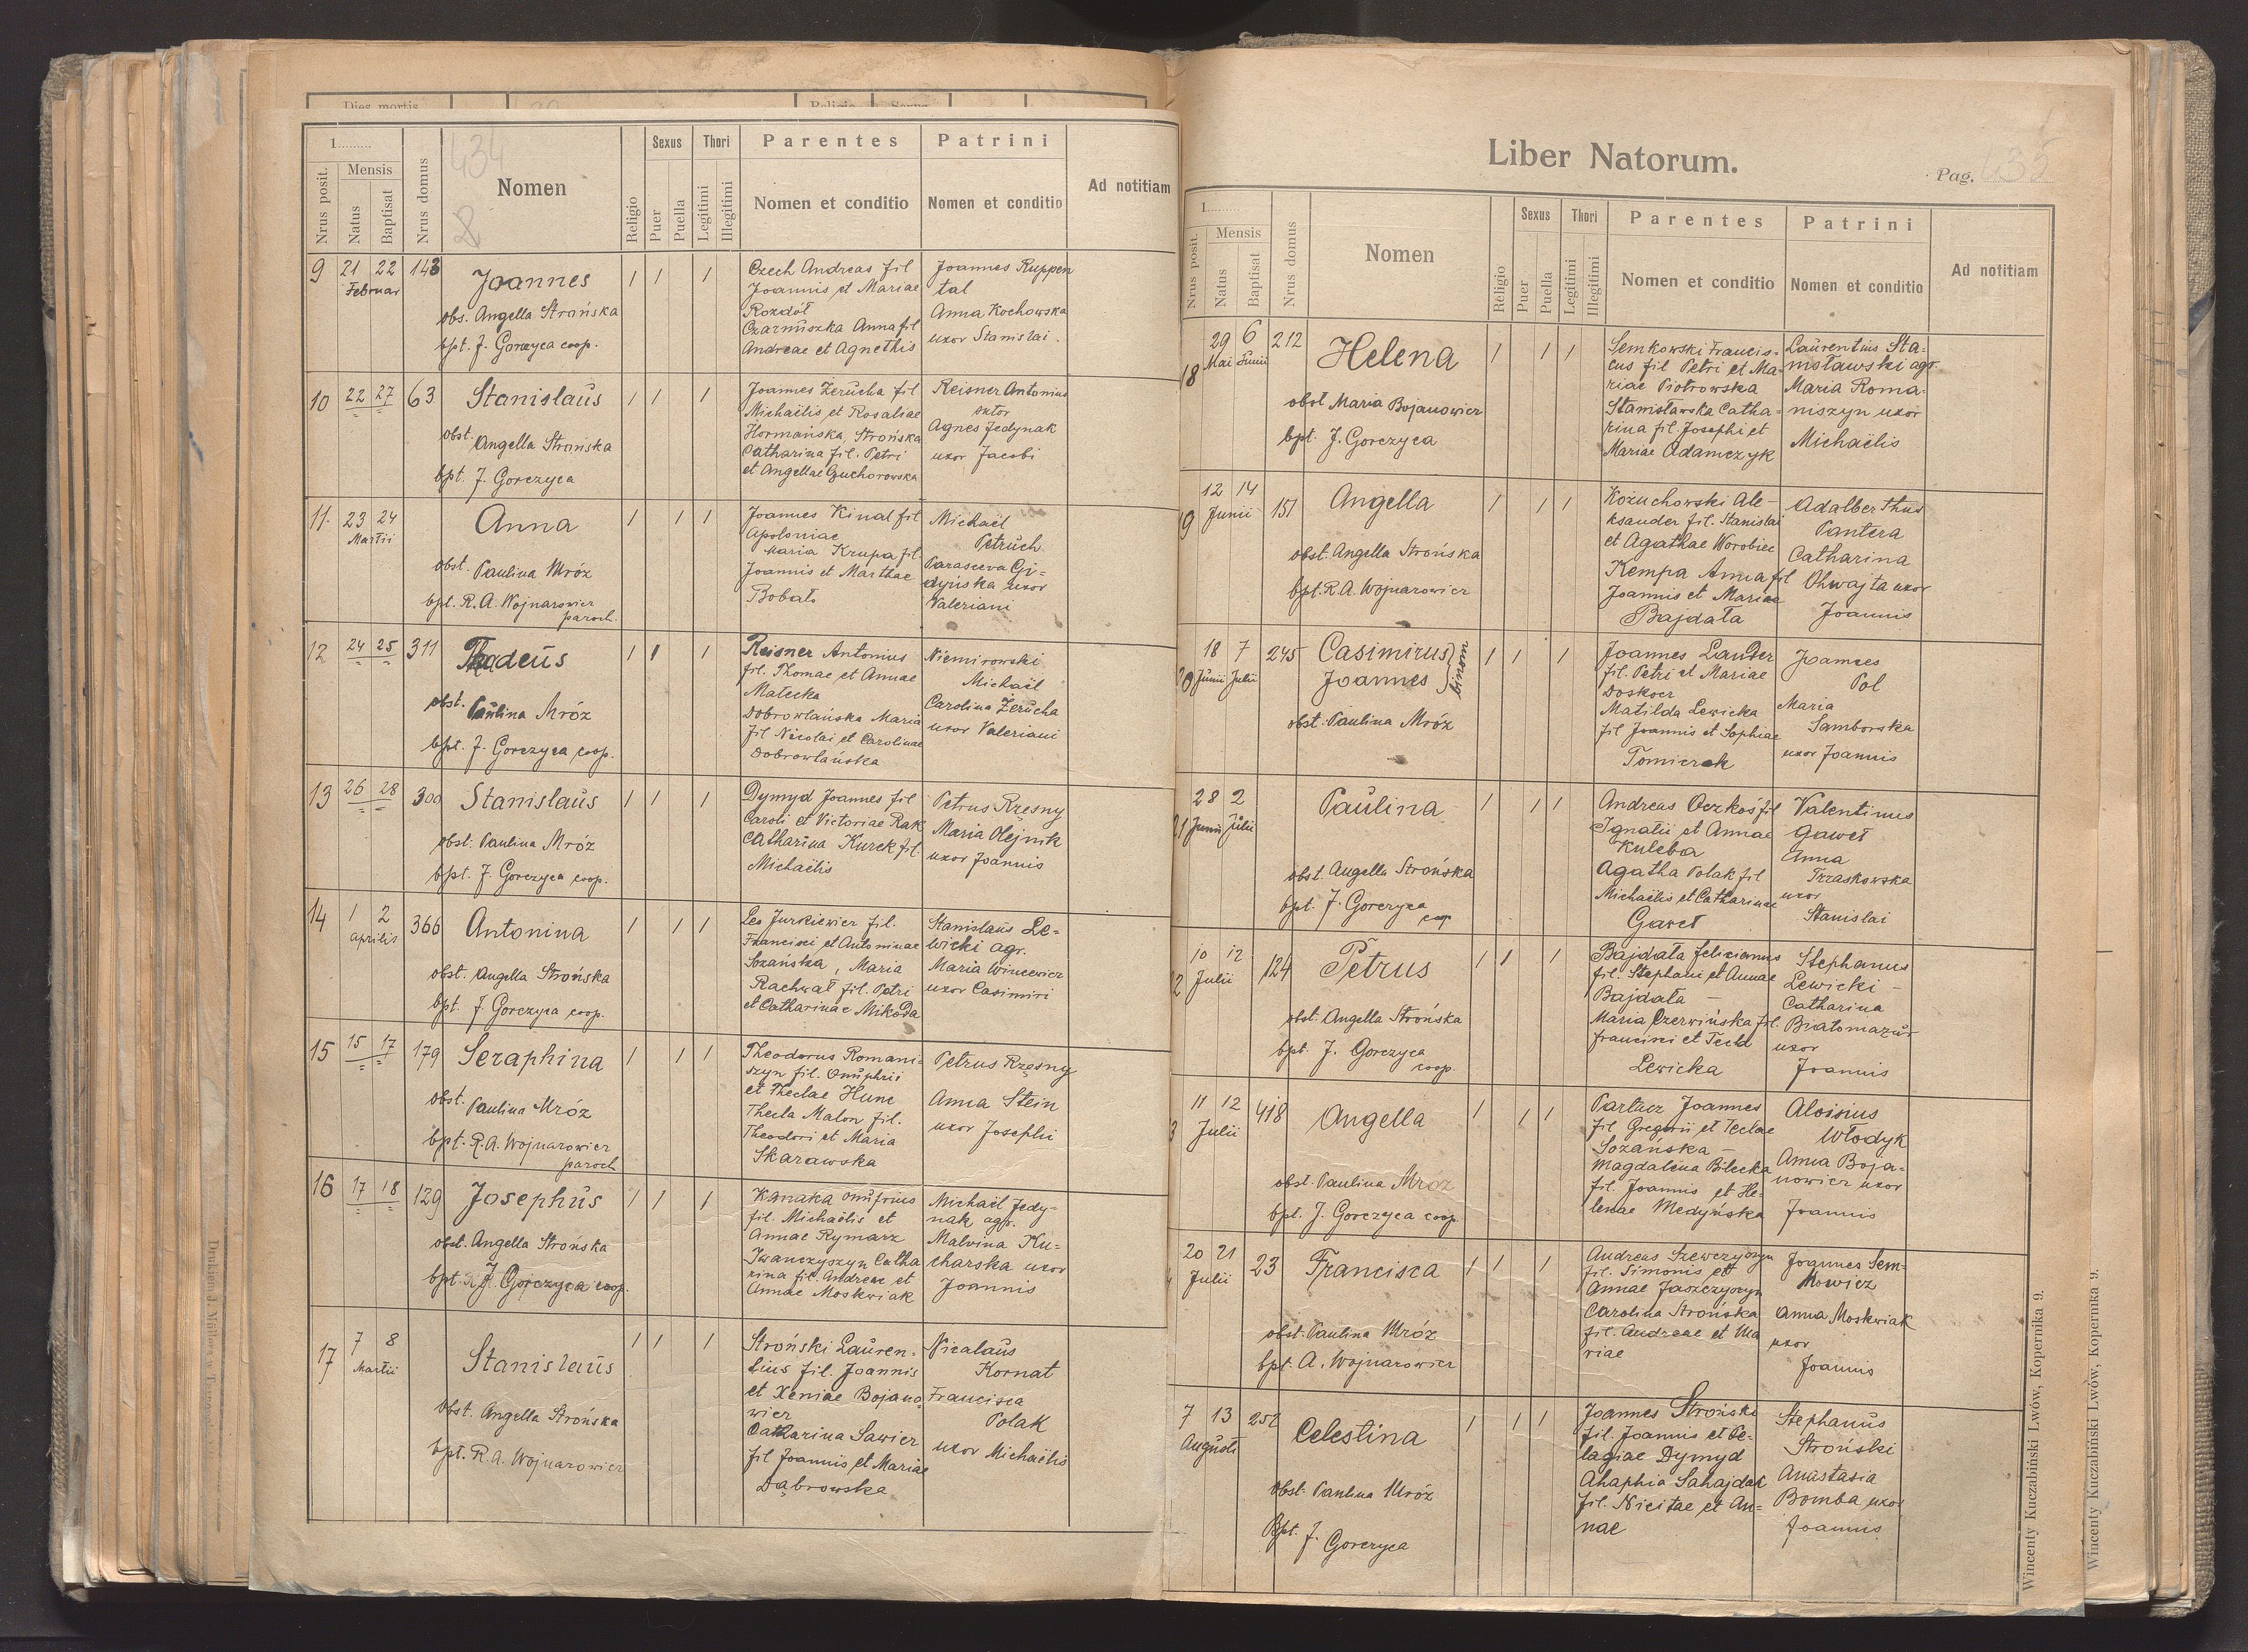 Dies mortis
Religio
Sexus
1.........
Mensis
Nrus posit.
Natus
Baptisat
Nrus domus
434
2
Nomen
Religio
Sexus
Puer
Puella
Thori
Legitimi
Illegitimi
Parentes
Nomen et conditio
Patrini
Nomen et conditio
Ad notitiam
9 21 22 143
Februar
Joannes
obs. Angella Strońska
bpt. J. Gorczyca coop.
1 1 1
Czech Andreas fil
Joannis et Mariae
Rozdół
Czarnuszka Anna fil
Andreae et Agnethis
Joannes Ruppen
tal
Anna Kochowska
uxor Stanislai.
10 22 27 63
Stanislaus
obst. Angella Strońska
bpt. J. Gorczyca
1 1 1
Joannes Żerucha fil
Michaëlis et Rosaliae
Hormańska, Strońska
Catharina fil. Petri
et Angellae Guchorowska
Reisner Antonius
sutor
Agnes Jedynak
uxor Jacobi
11. 23 24
Martii
Anna
obst. Paulina Mróz
bpt. R. A. Wojnarowicz
paroch.
1 1 1
Joannes Kinal fil
Apoloniae
Maria Krupa fil.
Joannis et Marthae
Bobało
Michaël
Petruch
Parasceva Gi=
dyńska uxor
Valeriani
12 24 25 311
Thadeus
obst. Paulina Mróz
bpt. J. Gorczyca coop.
1 1 1
Reisner Antonius
fil. Thomae et Annae
Małecka
Dobrowlańska Maria
fil Nicolai et Carolinae
Dobrowlańska
Niemirowski
Michaël
Carolina Żerucha
uxor Valeriani
13 26 28 300
Stanislaus
obst. Paulina Mróz
bpt. J. Gorczyca coop.
1 1 1
Dymyd Joannes fil
Caroli et Victoriae Rak
Catharina Kurek fil.
Michaëlis
Petrus Rzęsny
Maria Olejnik
uxor Joannis
14 1 2 366
Aprilis
Antonina
obst. Angella Strońska
bpt. J. Gorczyca coop.
1 1 1
Leo Jurkiewicz fil.
Francisci et Antoninae
Sozańska, Maria
Rachwał fil. Petri
et Catharinae Mikoda
Stanislaus Le=
wicki agr.
Maria Wincewicz
uxor Casimiri
15 15 17 179
Seraphina
obst. Paulina Mróz
bpt. R. A. Wojnarowicz
paroch
1 1 1
Theodorus Romani=
szyn fil. Onuphrii
et Theclae Hunc
Thecla Malon fil.
Theodori et Maria
Skarawska
Petrus Rzęsny
Anna Stein
uxor Josephi
16 17 18 129
Josephus
obst. Angella Strońska
bpt. J. Gorczyca coop.
1 1 1
Kanaka Onufrius
fil. Michaëlis et
Annae Rymarz
Iwanczyszyn Catha
rina fil. Andreae et
Annae Moskwiak
Michaël Jedy=
nak agr.
Malvina Ku=
charska uxor
Joannis
17 7 8
Martii
Stanislaus
obst. Angella Strońska
bpt. R. A. Wojnarowicz
1 1 1
Stroński Lauren=
tius fil. Joannis
et Xeniae Bojano
wicz
Catharina Sawicz
fil Joannis et Mariae
Dąbrowska
Nicolaus
Kornat
Francisca
Polak
uxor Michaëlis
Liber Natorum.
Pag. 435
1.........
Mensis
Nrus posit.
Natus
Baptisat
Nrus domus
Nomen
Religio
Sexus
Puer
Puella
Thori
Legitimi
Illegitimi
Parentes
Nomen et conditio
Patrini
Nomen et conditio
Ad notitiam
18 29 6 212
Mai Junii
Helena
obst Maria Bojanowicz
bpt. J. Gorczyca
1 1 1
Semkowski Francis=
cus fil Petri et Ma=
riae Piotrowska
Stanisławska Catha=
rina fil. Josephi et
Mariae Adamczyk
Laurentius Sta=
nisławski agr.
Maria Roma=
niszyn uxor
Michaëlis
19 12 14 151
Junii
Angella
obst. Angella Strońska
bpt. R. A. Wojnarowicz
1 1 1
Kozuchowski Ale-
ksander fil. Stanislai
et Agathae Worobiec
Kempa Anna fil
Joannis et Mariae
Bajdała
Adalberthus
Pantera
Catharina
Chwajta uxor
Joannis
20 18 7 245
Junii Julii
Casimirus
Joannes } binom
obst. Paulina Mróz
1 1 1
Joannes Lauder
fil. Petri et Mariae
Doskocz
Matilda Lewicka
fil Joannis et Sophiae
Tomiczek
Joannes
Pol
Maria
Samborska
uxor Joannis
21 28 2
Junii Julii
Paulina
obst. Angella Strońska
bpt. J. Gorczyca
coop
1 1 1
Andreas Oczkoś fil
Ignatii et Annae
Kuleba
Agatha Polak fil
Michaëlis et Catharinae
Gaweł
Valentinus
Gaweł
Anna
Trzaskowska
uxor
Stanislai
2 10 12 124
Julii
Petrus
obst. Angella Strońska
bpt. J. Gorczyca
coop.
1 1 1
Bajdała Felicianus
fil. Stephani et Annae
Bajdała -
Maria Czerwińska fil.
Francisci et Tecla
Lewicka
Stephanus
Lewicki -
Catharina
Białomazur
uxor
Joannis
3 11 12 418
Julii
Angella
obst. Paulina Mróz
bpt. J. Gorczyca coop.
1 1 1
Partacz Joannes
fil Gregorii et Teclae
Sozańska -
Magdalena Bilecka
fil. Joannis et He=
lenae Medyńska
Aloisius
Włodyk
Anna Boja=
nowicz uxor
Joannis
4 20 21 23
Julii
Francisca
obst. Paulina Mróz
bpt. A. Wojnarowicz
1 1 1
Andreas Szewczyszyn
fil. Simonis et
Annae Jaszczyszyn
Carolina Strońska
fil. Andreae et Ma
riae
Joannes Sem=
kowicz
Anna Moskwiak
uxor
Joannis
7 13 252
Augusti
Celestina
obst. Paulina Mróz
Bpt. J. Gorczyca
1 1 1
Joannes Stroński
fil. Joannis et Pe=
lagiae Dymyd
Ahaphia Sahajdak
fil. Nicitae et An=
nae
Stephanus
Stroński
Anastasia
Bomba uxor
Joannis
Wincenty Kuczabiński Lwów, Kopernika 9.
Wincenty Kuczabiński Lwów, Kopernika 9.